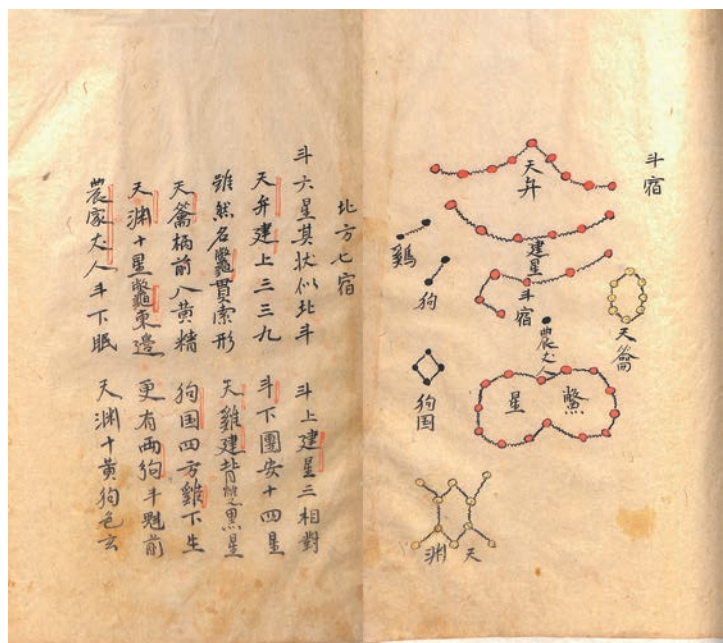 斗宿
天弁
建星
斗宿
天籥
農丈人
鱉星
鷄
狗
狗国
天渊
北方七宿
斗六星其状似北斗 斗上建星三相對
天弁建上三三九 斗下團安十四星
雖然名鼈貫索形 天雞建背雙黒星
天籥柄前八黃精 狗国四方雞下生
天渊十星鼈東邊 更有両狗斗魁前
農家丈人斗下眠 天渊十黃狗色玄